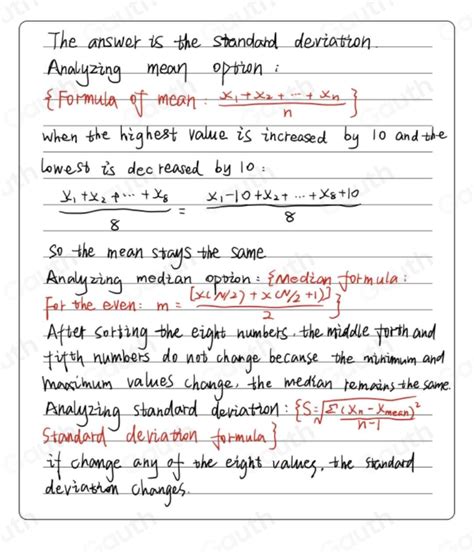 The answer is the standard deviation.
Analyzing mean option :
{Formula of mean : (x₁+x₂+···+xₙ)/n}
when the highest value is increased by 10 and the
lowest is decreased by 10 :
(x₁+x₂+···+x₈)/8 = (x₁-10+x₂+···+x₈+10)/8
so the mean stays the same
Analyzing median option : {Median formula :
For the even: m = [x(N/2)+x(N/2+1)]/2}
After sorting the eight numbers, the middle forth and
fifth numbers do not change because the minimum and
maximum values change, the median remains the same.
Analyzing standard deviation : {S=√(Σ(xₙ-x_mean)²/(n-1))
Standard deviation formula}
if change any of the eight values, the standard
deviation changes.
Gauth